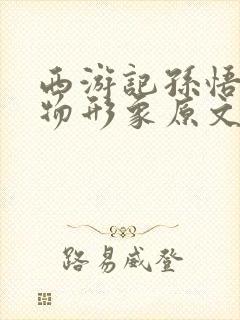 西游記孫悟
物形象原文
路易威登